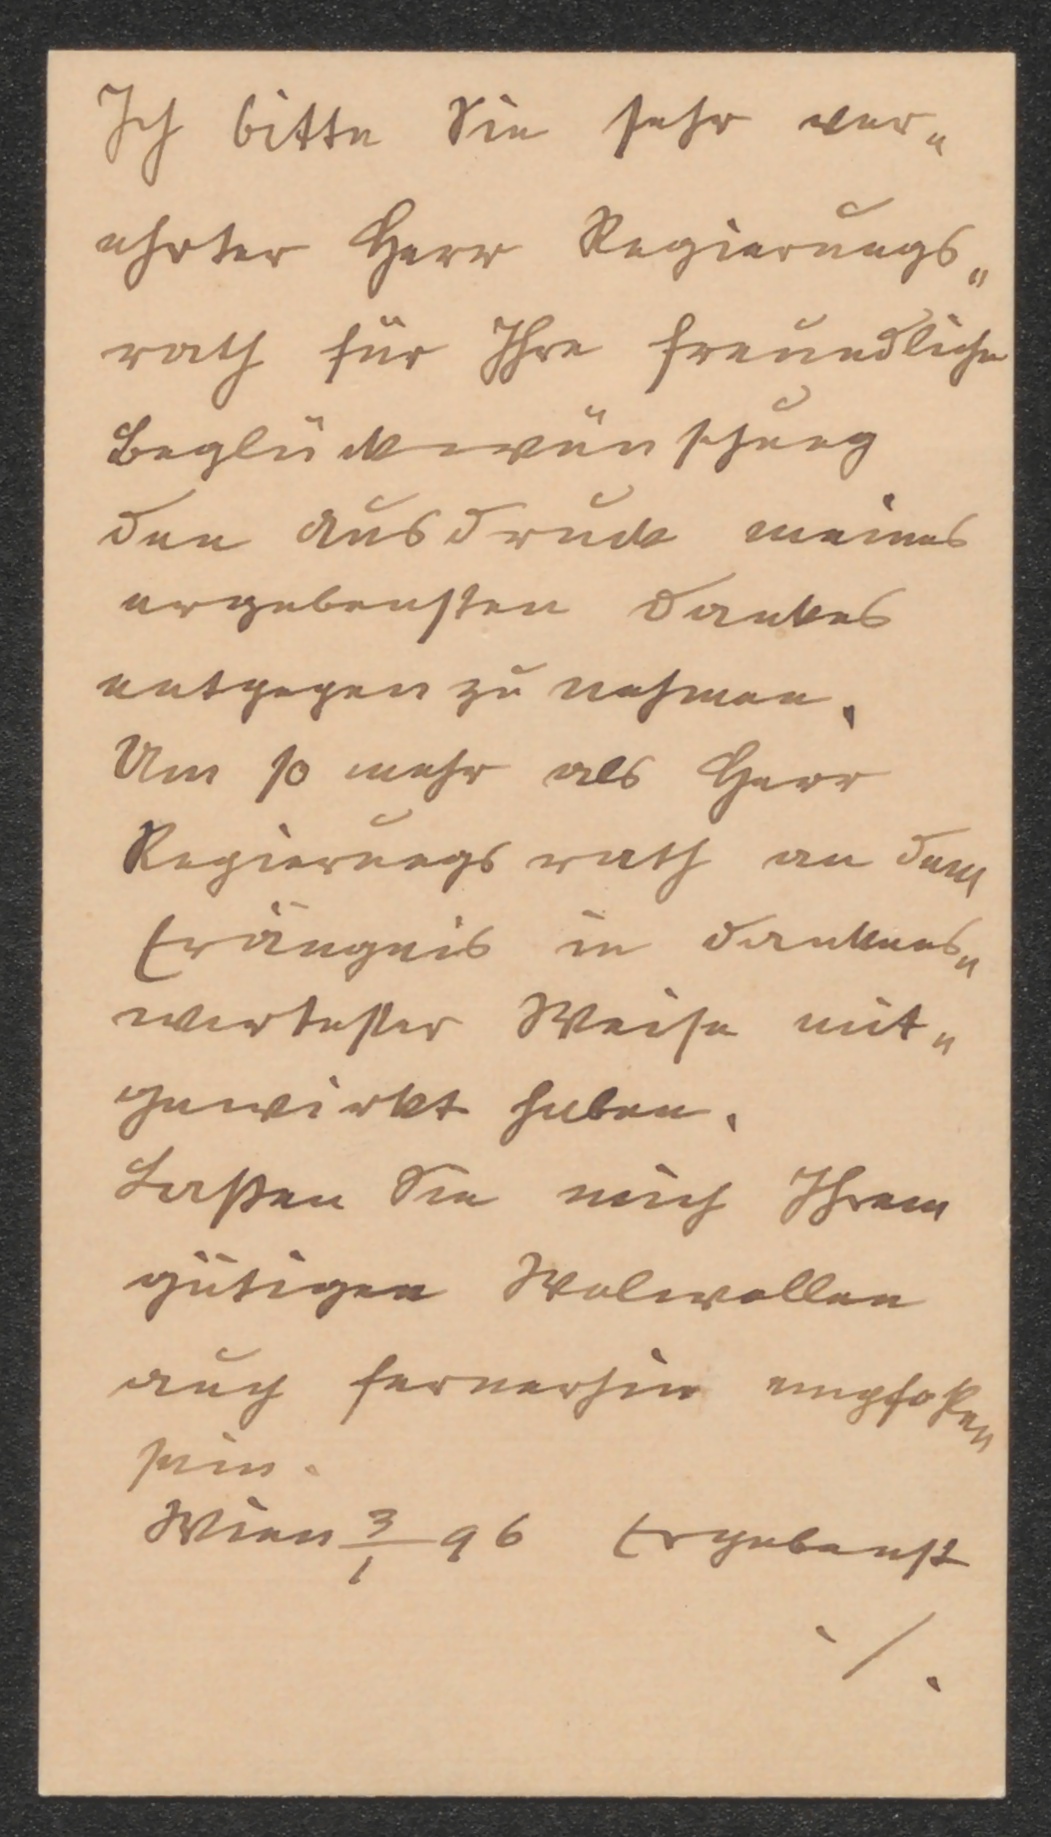 Ich bitte Sie sehr ver„
ehrter Herr Regierungs„
rath für Ihre freundliche
Beglückwünschung
den Ausdruck meines
ergebensten Dankes
entgegen zu nehmen.
Um so mehr als Herr
Regierungsrath an dem
Erängnis in dankens„
wertester Weise mit„
gewirkt haben.
Laßen Sie mich Ihrem
gütigen Wolwollen
auch fernerhin empfolen
sein.
Wien 3/1 96 Ergebenst
./.